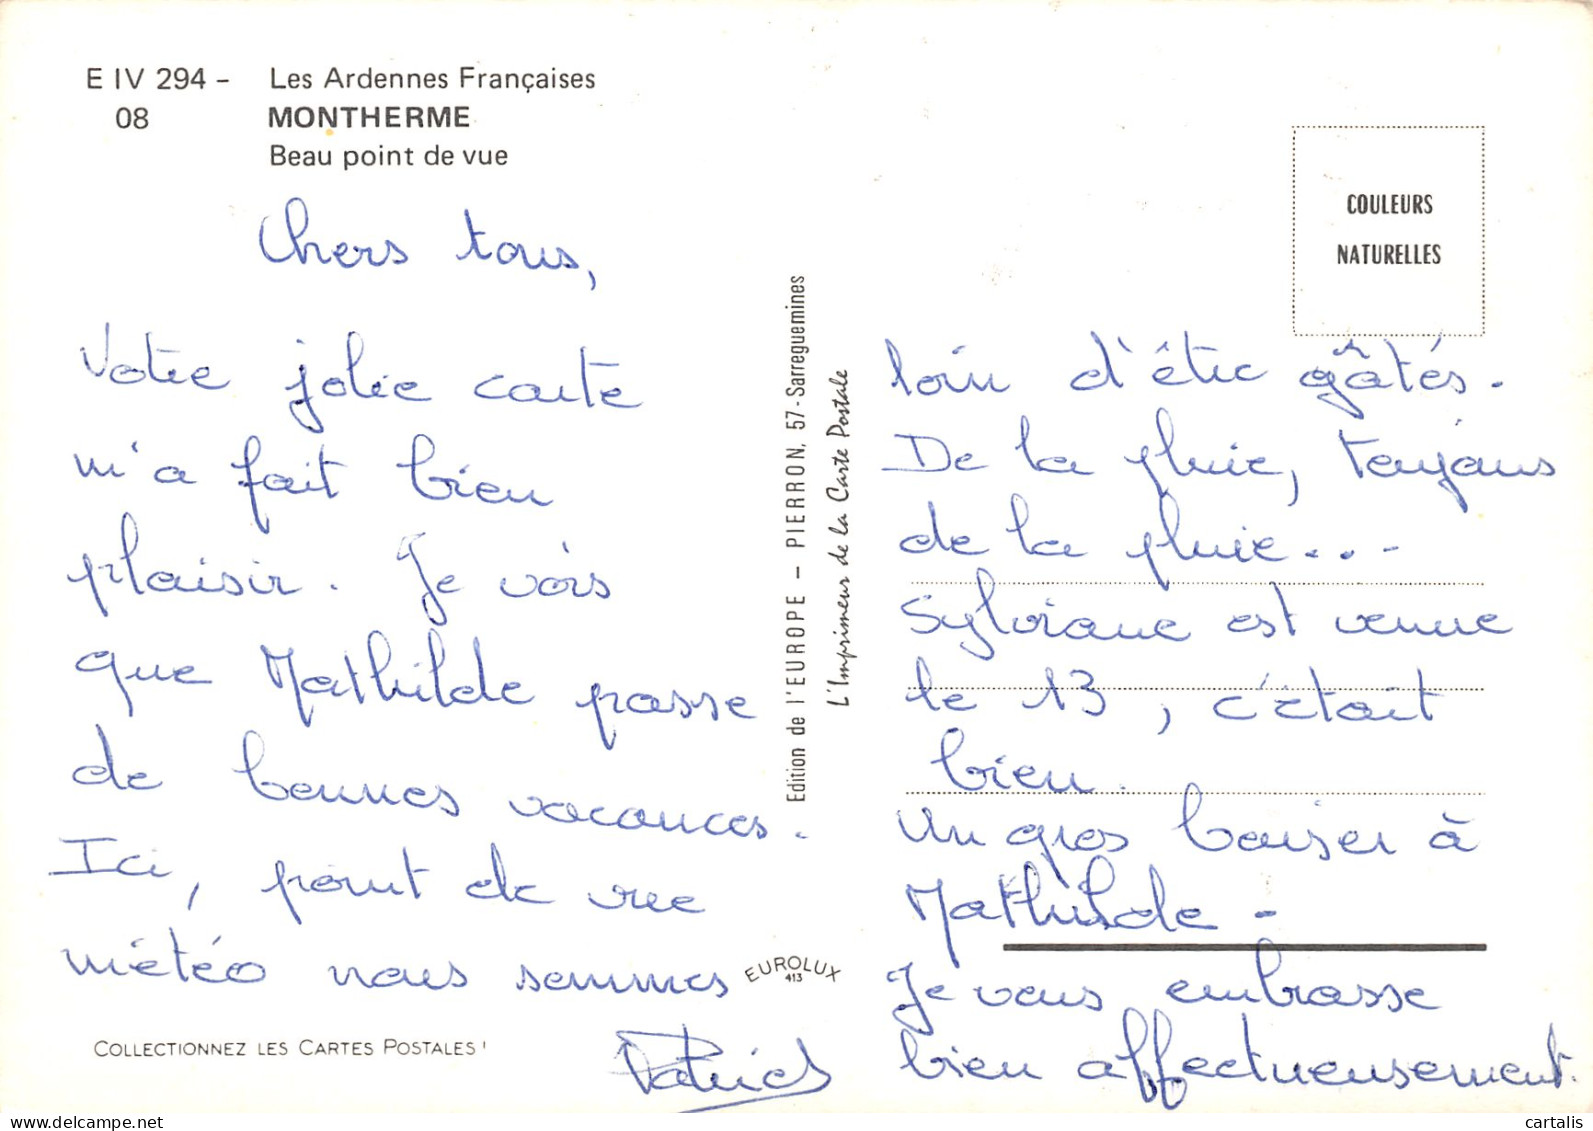 E IV 294 - Les Ardennes Françaises
08 MONTHERME
Beau point de vue
Chers tous,
Votre jolie carte
m'a fait bien
plaisir. Je vois
que Mathilde passe
de bonnes vacances.
Ici, point de vue
météo nous sommes
COLLECTIONNEZ LES CARTES POSTALES !
Edition de l'EUROPE – PIERRON, 57-Sarreguemines
L'Imprimeur de la Carte Postale
EUROLUX
413
COULEURS
NATURELLES
loin d'être gâtés.
De la pluie, toujours
de la pluie...
Sylviane est venue
le 13, c'était
bien.
Un gros baiser à
Mathilde -
Je vous embrasse
bien affectueusement.
Patrick
cartalis